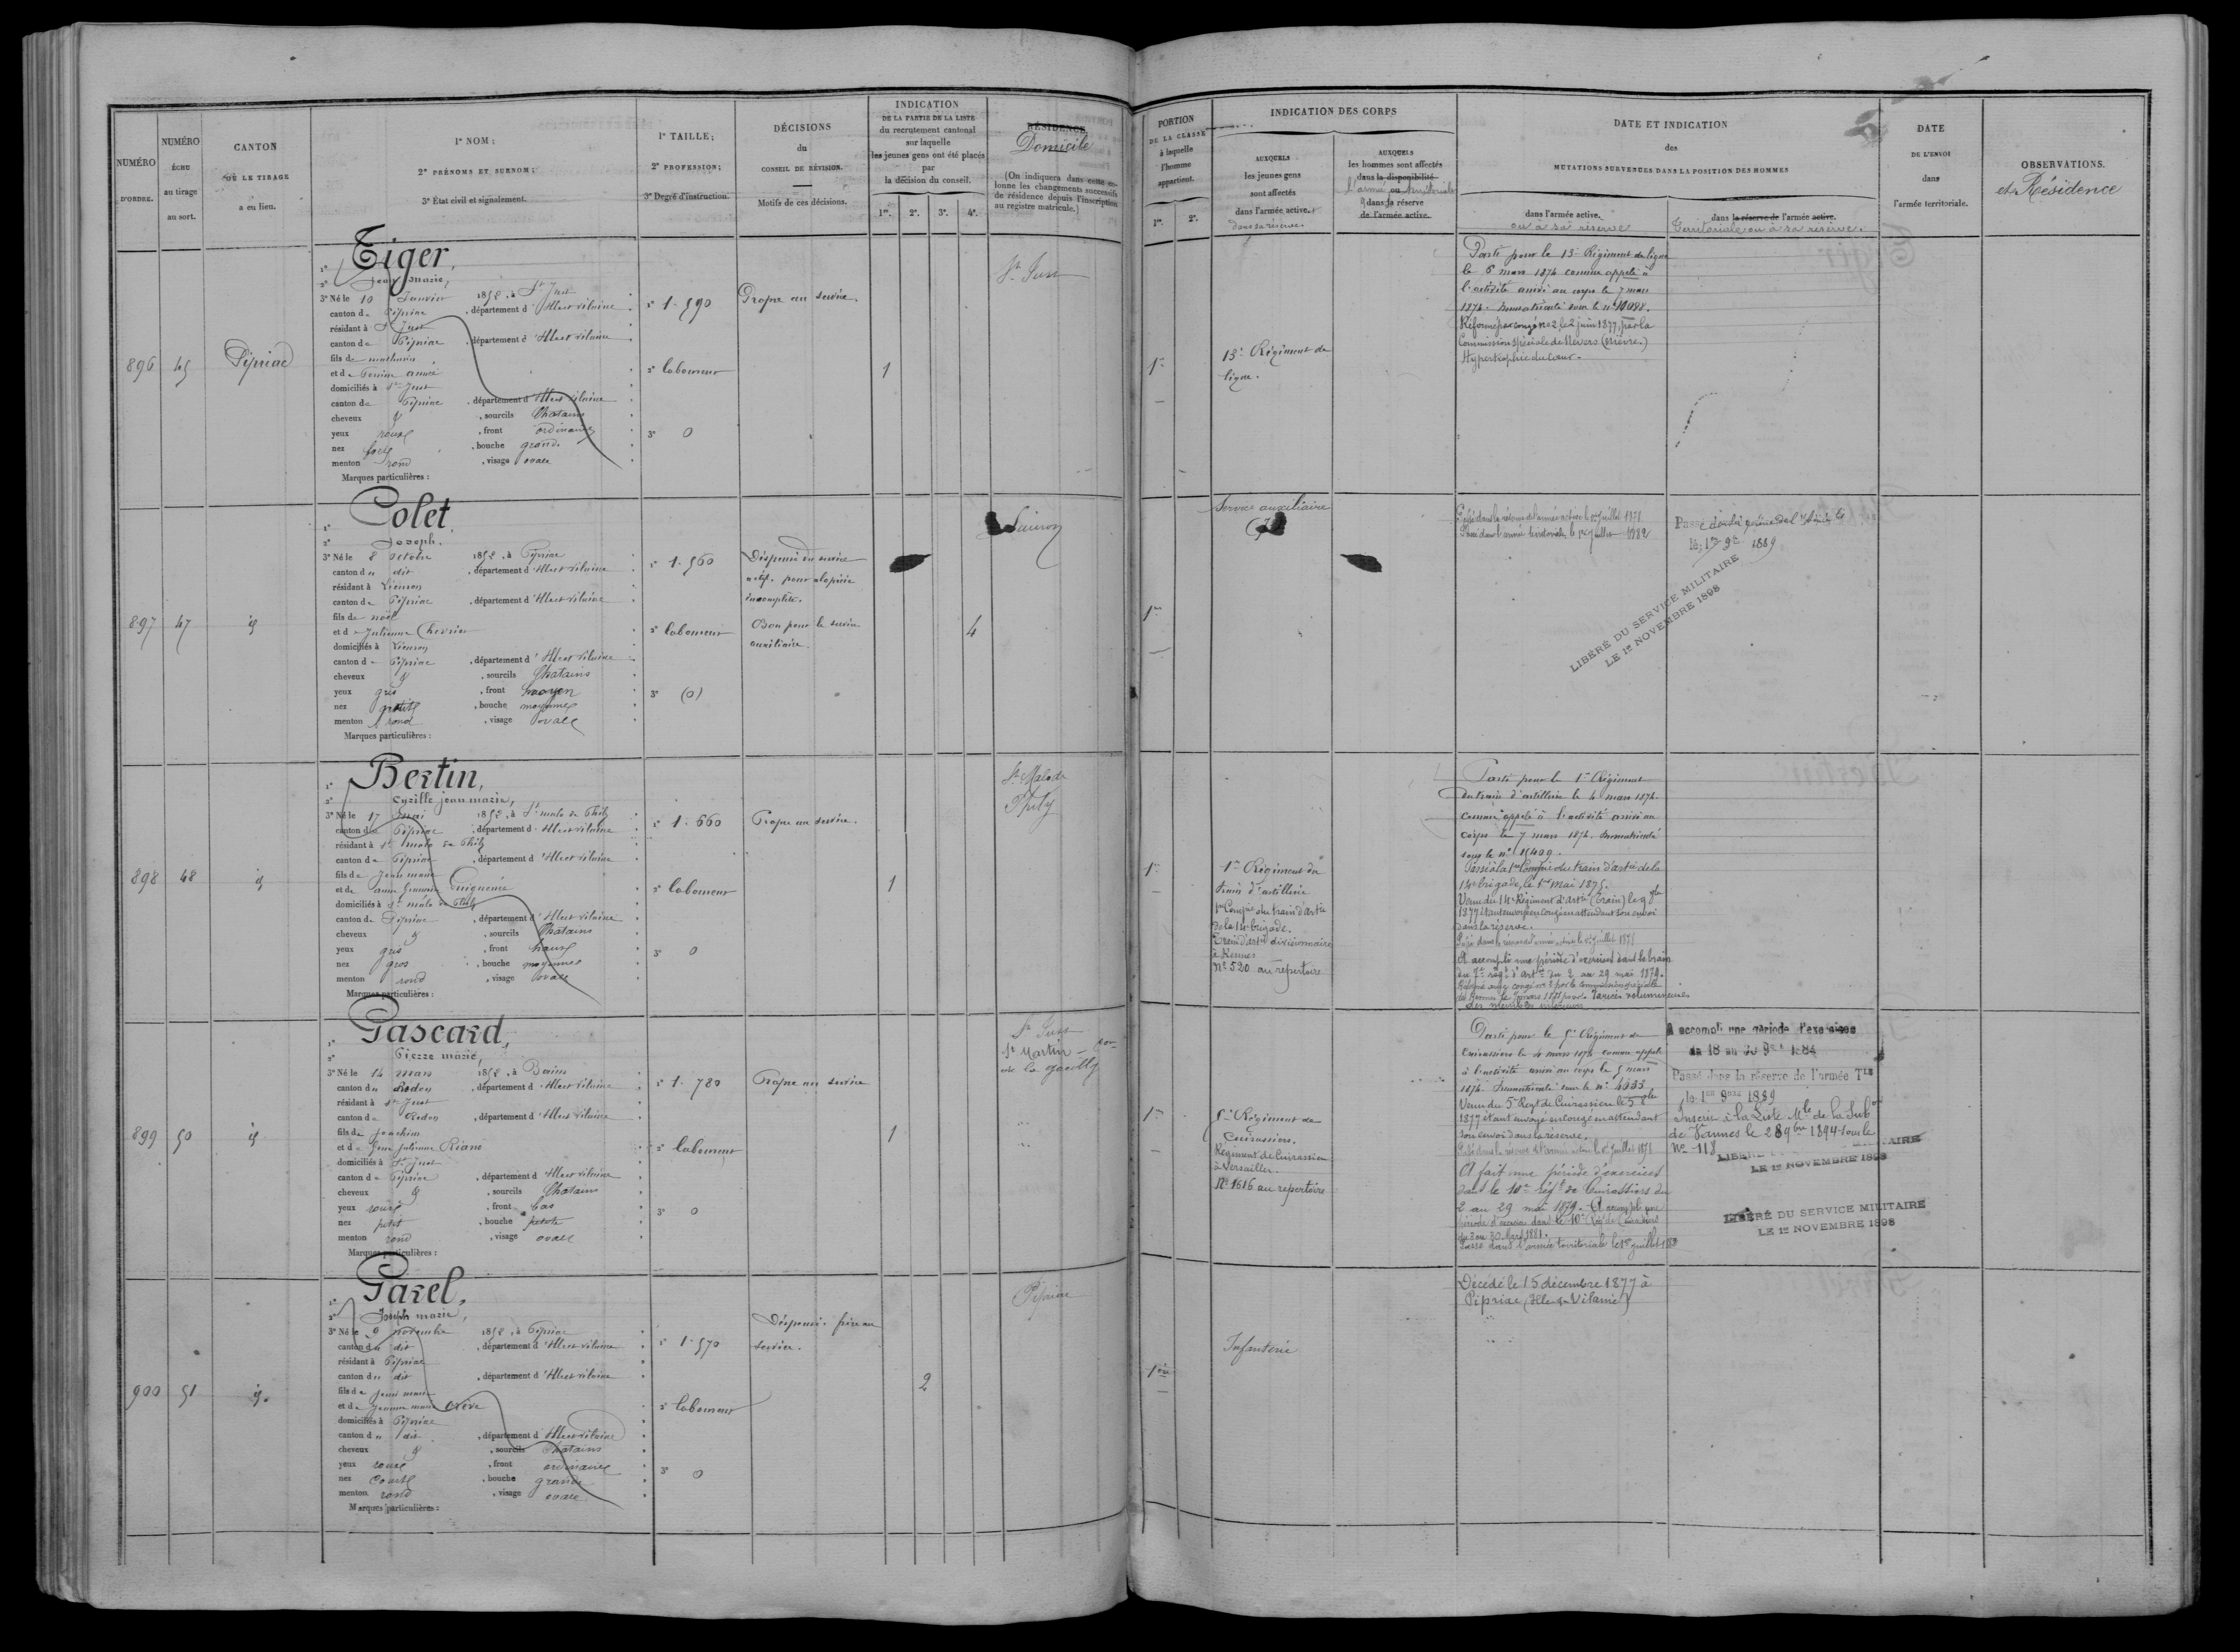 NUMÉRO D'ORDRE.
NUMÉRO ÉCHU au tirage au sort.
CANTON OÙ LE TIRAGE a eu lieu.
1º NOM;
2º PRÉNOMS ET SURNOM;
3º État civil et signalement.
1º TAILLE;
2º PROFESSION;
3º Degré d'instruction.
DÉCISIONS
du
CONSEIL DE RÉVISION.
Motifs de ces décisions.
INDICATION
DE LA PARTIE DE LA LISTE
du recrutement cantonal
sur laquelle
les jeunes gens ont été placés
par
la décision du conseil.
1re. 2e. 3e. 4e.
RÉSIDENCE
Domicile
(On indiquera dans cette colonne les changements successifs de résidence depuis l'inscription au registre matricule.)
PORTION
DE LA CLASSE
à laquelle
l'homme
appartient.
1re. 2e.
INDICATION DES CORPS
AUXQUELS
les jeunes gens
sont affectés
dans l'armée active.
dans sa réserve.
AUXQUELS
les hommes sont affectés
dans la disponibilité
l'armée ou territoriale
dans la réserve
de l'armée active.
DATE ET INDICATION
des
MUTATIONS SURVENUES DANS LA POSITION DES HOMMES
dans l'armée active.
ou à sa réserve
dans la réserve de l'armée active.
Territoriale ou à sa réserve.
DATE
DE L'ENVOI
dans
l'armée territoriale.
OBSERVATIONS.
et Résidence
896 45 Pipriac
Tiger,
Jean Marie,
3º Né le 10 Janvier 1852, à St Just
canton de Pipriac, département d'Ille et Vilaine
résidant à St Just
canton de Pipriac, département d'Ille et Vilaine
fils de mathurin
et de Perrine
domiciliés à St Just
canton de Pipriac, département d'Ille et Vilaine
cheveux &, sourcils Chatains
yeux roux, front ordinaire
nez, bouche grande
menton rond, visage ovale
Marques particulières :
1º 1.590
2º laboureur
3º 0
Propre au service
1
St Just
1re
13e Régiment de
ligne.
Parti pour le 13e Régiment de ligne
le 6 mars 1874 comme appelé à
l'activité arrivé au corps le 7 mars
1874. Immatriculé sous le nº 10098.
Réformé par congé nº 2, le 2 juin 1877, par la
Commission Spéciale de Nevers (Nièvre.)
Hypertrophie du Cœur.
897 47 id
Colet.
Joseph.
3º Né le 8 octobre 1852, à Pipriac
canton du dit, département d'Ille et Vilaine
résidant à Lieuron
canton de Pipriac, département d'Ille et Vilaine
fils de noël
et de Julienne Chevrier
domiciliés à Lieuron
canton de Pipriac, département d'Ille et Vilaine
cheveux &, sourcils Chatains
yeux gris, front moyen
nez, bouche moyenne
menton rond, visage ovale
Marques particulières :
1º 1.560
2º laboureur
3º (0)
Dispensé du service
actif. pour alopécie
incomplète.
Bon pour le service
auxiliaire.
4
Lieuron
1re
Service auxiliaire
Passé dans la réserve de l'armée active le 1er Juillet 1878
Passé dans l'armée territoriale le 1er Juillet 1882
Passé dans la réserve de l'Armée
le 1er 9bre 1889
LIBÉRÉ DU SERVICE MILITAIRE
LE 1er NOVEMBRE 1898
898 48 id
Bertin,
Cyrille jean marie,
3º Né le 17 mai 1852, à St malo de Phily
canton de Pipriac, département d'Ille et Vilaine
résidant à St malo de Phily
canton de Pipriac, département d'Ille et Vilaine
fils de Jean marie
et de anne Guiguenée
domiciliés à St malo de Phily
canton de Pipriac, département d'Ille et Vilaine
cheveux &, sourcils Chatains
yeux gris, front haut
nez gros, bouche moyenne
menton rond, visage ovale
Marques particulières :
1º 1.660
2º laboureur
3º 0
Propre au service.
1
St Malo de
Phily
1re
1er Régiment du
train d'artillerie
1re Compie du train d'artie
de la 14e brigade.
Train d'artie divisionnaire
à Rennes
Nº 520 au répertoire
Parti pour le 1er Régiment
du train d'artillerie le 4 mars 1874.
comme appelé à l'activité arrivé au
corps le 7 mars 1874. Immatriculé
sous le nº 15499.
Passé à la 1re Compie du train d'artie de la
14e brigade, le 1er mai 1875.
Venu du 14e Régiment d'Artie (train) le 9
1877 étant envoyé en congé en attendant son envoi
dans la réserve.
Passé dans la réserve de l'armée active le 1er Juillet 1878
A accompli une période d'exercices dans le train
du 7e régt d'Artie du 2 au 29 mai 1879.
Réformé avec congé nº 2 par la commission spéciale
de Rennes le 1881 pour Varices volumineuses
des membres inférieurs
899 50 id
Gascard,
Pierre marie,
3º Né le 14 mars 1852, à Bains
canton de Redon, département d'Ille et Vilaine
résidant à St Just
canton de Redon, département d'Ille et Vilaine
fils de Joachim
et de Julienne Riand
domiciliés à St Just
canton de Pipriac, département d'Ille et Vilaine
cheveux &, sourcils Chatains
yeux roux, front bas
nez petit, bouche petite
menton rond, visage ovale
Marques particulières :
1º 1.780
2º laboureur
3º 0
Propre au service
1
St Just
St Martin
de la gacilly
1re
5e Régiment de
Cuirassiers.
Régiment de Cuirassiers
à Versailles.
Nº 1616 au répertoire
Parti pour le 5e Régiment de
Cuirassiers le 4 mars 1874 comme appelé
à l'activité arrivé au corps le 5 mars
1874. Immatriculé sous le nº 4033
Venu du 5e Regt de Cuirassiers le 5 8bre
1877 étant envoyé en congé en attendant
son envoi dans la réserve.
Passé dans la réserve de l'armée active le 1er Juillet 1878
A fait une période d'exercices
dans le 10e régt de Cuirassiers du
2 au 29 mai 1879. A accompli une
période d'exercices dans le 10e Régt de Cuirassiers
du 3 au 30 Mars 1881.
Passé dans l'armée territoriale le 1er juillet
A accompli une période d'exercices
du 18 au 30 9bre 1884
Passé dans la réserve de l'armée Tle
le 1er 9bre 1889
Inscrit à la Liste Mle de la Subon
de Vannes le 28 9bre 1894 sous le
Nº 118
LE 1er NOVEMBRE 1898
LIBÉRÉ DU SERVICE MILITAIRE
LE 1er NOVEMBRE 1898
900 51 id.
Garel,
Joseph marie,
3º Né le 9 novembre 1852, à Pipriac
canton du dit, département d'Ille et Vilaine
résidant à Pipriac
canton du dit, département d'Ille et Vilaine
fils de Jean marie
et de Jeanne marie
domiciliés à Pipriac
canton du dit, département d'Ille et Vilaine
cheveux &, sourcils Chatains
yeux roux, front ordinaire
nez court, bouche grande
menton rond, visage ovale
Marques particulières :
1º 1.570
2º laboureur
3º 0
Dispensé: frère au
service.
2
Pipriac
1ère
Infanterie
Décédé le 15 décembre 1877 à
Pipriac (Ille & Vilaine)